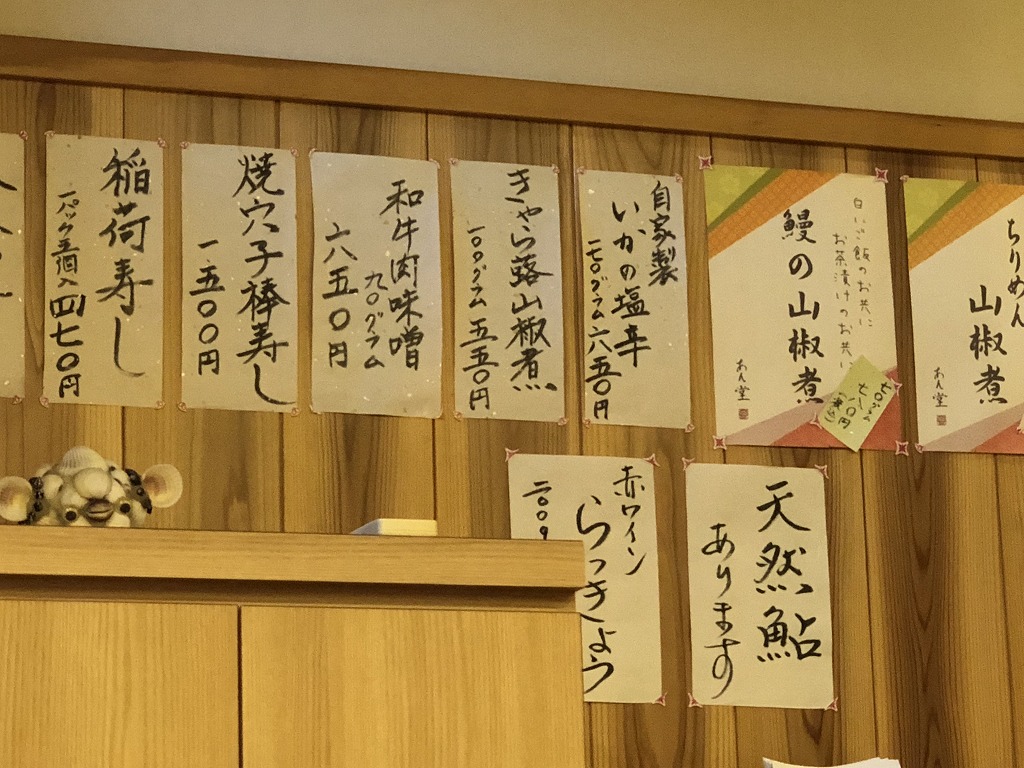 稲荷寿し
一パック五個入 四七〇円
焼穴子棒寿し
一五〇〇円
和牛肉味噌
九〇グラム
六八五〇円
きゃら蕗山椒煮
一〇〇グラム 五五〇円
自家製
いかの塩辛
一七〇グラム 六五〇円
白いご飯のお共に
お茶漬けのお共に
鰻の山椒煮
あん堂
七〇グラム
ちりめん
山椒煮
あん堂
赤ワイン
らっきょう
二〇〇g
天然鮎
あります